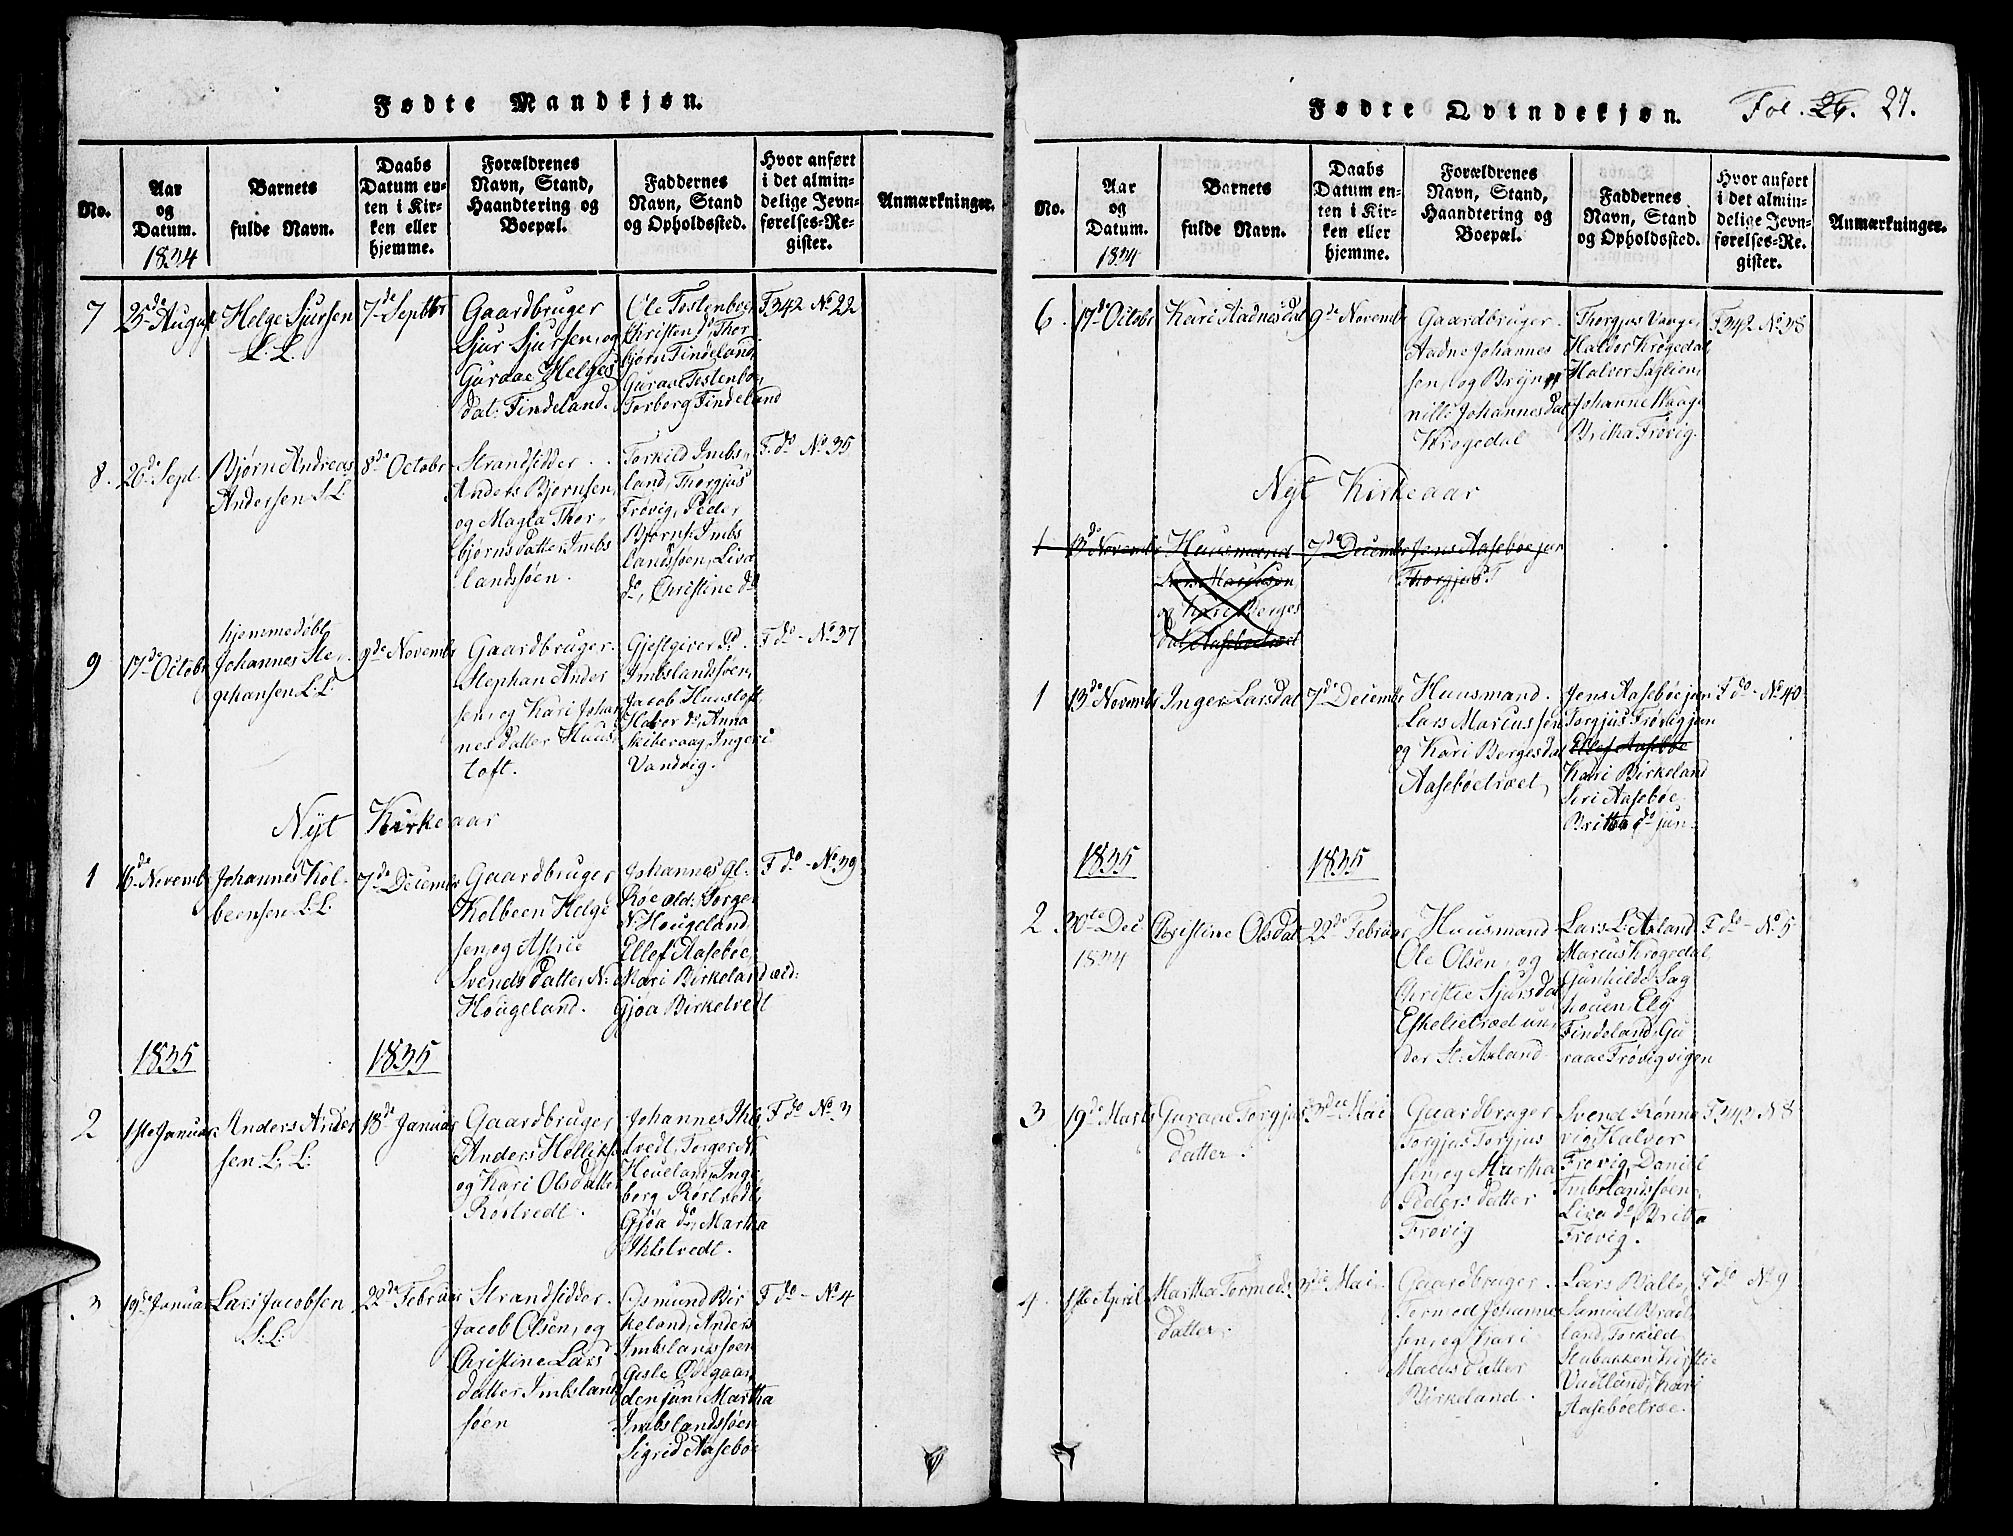 Fødte Mandkjøn.
No.
Aar
og
Datum.
1834
Barnets
fulde Navn.
Daabs
Datum en-
ten i Kir-
ken eller
hjemme.
Forældrenes
Navn, Stand,
Haandtering og
Boepæl.
Faddernes
Navn, Stand
og Opholdssted.
Hvor anført
i det almin-
delige Jevn-
førelses-Re-
gister.
Anmærkninger.
7
25de August
Helge Sjursen
L. L.
7de Septbr
Gaardbruger
Sjur Sjursen, og
Guraae Helges
dat: Findeland.
Ole Tostenboe,
Christen do, Thor
bjørn Findeland,
Guraae Tostenboe,
Torborg Findeland
F 342 No 22
8.
26de Sept.
Bjørn Andreas
Andersen S. L:
8de Octobr
Strandsidder
Anders Bjørnsen,
og Magla Thor,
bjørnsdatter Imbs
landssøen.
Torkild Imbs,
land, Thorgjus
Frøvig, Peder
Bjørns: Imbs
landssøen, Lisa
do, Christine do
F. do No 35
9
17de Octobr
hjemmedøbt
Johannes Ste,
phansen L. L:
9de Novembr
Gaardbruger
Stephan Ander
sen, og Kari Johan
nesdatter Huus
toft.
Gjestgiver P.
Imbslandssøen,
Jacob Huustoft,
Halvor do, Anna
Skiberaag, Ingeri
Vandvig.
F do - No 37
Nyt Kirkeaar
1
16de Novembr
Johannes Kol-
beensen L. L:
7de Decembr
Gaardbruger
Kolbeen Helge
sen, og Asrie
Svendsdatter, N:
Hougeland.
Johannes gl.
Røe old: Torger
N. Hougeland
Ellef Aasebøe,
Mari Birkeland old:
Gjøa Birketvedt
F do - No 39
1835
1835
2
1ste Januar
Anders Ander
sen L. L:
18de Januar
Gaardbruger
Anders Helliks
og Kari Olsdatter
Røstvedt.
Johannes Ihls
tvedt, Torger N.
Houeland, Inge
borg Røstvedt,
Gjøa do, Martha
Ihlstvedt.
F do No 3
3
19de Januar
Lars Jacobsen
S: L:
22de Februar
Strandsidder
Jacob Olsen, og
Christine Lars
datter Imbsland
søen
Osmund Bir
keland, Anders
Imbslandssøen
Gisle Ødegaar
den jun: Martha
Imbslandssøen
Sigrid Aasebøe
F do - No 4
Fødte Qvindekjøn.
Fol. 26. 27.
No.
Aar
og
Datum.
1834
Barnets
fulde Navn.
Daabs
Datum en-
ten i Kir-
ken eller
hjemme.
Forældrenes
Navn, Stand,
Haandtering og
Boepæl.
Faddernes
Navn, Stand
og Opholdssted.
Hvor anført
i det almin-
delige Jevn-
førelses-Re-
gister.
Anmærkninger.
6.
17de Octobr
Kari Aadnesdat
9de Novembr
Gaardbruger
Aadne Johannes
sen, og Bryn
nille Johannesdat
Krogedal
Thorgjus Vaage,
Haldor Krogedal,
Halvor Saglien,
Johanne Waage
Britha Frøvig.
F. 342 No 38
Nyt Kirkeaar
1
13de Novembr
Huusmand
Lars Marcussen
og Kari Berges
dat Aasebøetræet
7de Decembr
Jens Aasebøe jun
Thorgjus T
1
13de Novembr
Inger Larsdat
7de Decembr
Huusmand
Lars Marcussen
og Kari Bergesdat
Aasebøetræet,
Jens Aasebøe jun
Torgjus Frøvig jun
Ellef Aasebøe
Kari Birkeland
Siri Aasebøe,
Britta do jun:
F do - No 40
1835
1835
2.
30te Dec
1834
Christine Olsdat
22de Februar
Huusmand
Ole Olsen, og
Christie Sjursdat
Eskelietræet un,
der St: Axland
Lars L: Axland
Marcus Krogedal,
Gunhilde Sag
houen, Ely
Findeland, Gu
raae Frøvigvigen
F do - No 5
3
19de Marts
Guraae Torgjus
datter
3die Mai
Gaardbruger
Torgjus Torgjus
sen, og Martha
Pedersdatter
Frøvig
Svend Rønne
vig, Halvor
Frøvig, Daniel
Imbslandssøen,
Lisa do, Britta
Frøvig.
F. 342 N 8
4.
1ste April
Martha Tormods
datter.
3die Mai
Gaardbruger
Tormod Johanne
sen, og Kari
Macusdatter
Birkeland.
Lars Valle,
Samuel Vraa
land, Torkild
Stabakken, Kirstie
Vadland, Kari
Aasebøetræ.
F do No 9